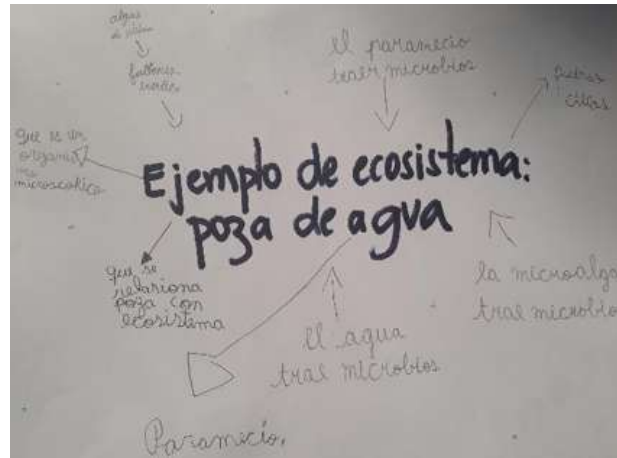 algas
el paramecio
traer microbios
cilias
que es un
organis
mo
microscopico
Ejemplo de ecosistema:
poza de agua
que se
relasiona
poza con
ecosistema
la microalga
trae microbio
el agua
trae microbios
Paramecio.